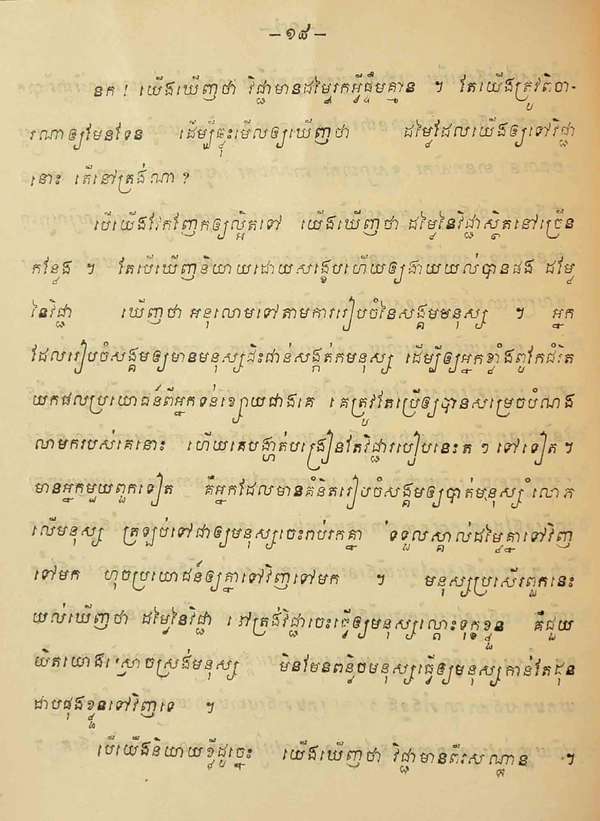 –១៨–
នក! យើងឃើញថា វិជ្ជាមានដម្លៃរកអ្វីផ្ទឹមគ្មាន ។ តែយើងត្រូវពិចា-
រណាឲ្យមែនទែន ដើម្បីឆ្លុះមើលឲ្យឃើញថា ដម្លៃដែលយើងឲ្យទៅវិជ្ជា
នោះ តើនៅត្រង់ណា?
បើយើងវែកញែកឲ្យល្អិតទៅ យើងឃើញថា ដម្លៃនៃវិជ្ជាស្ថិតនៅច្រើន
កន្លែង ។ តែបើឃើញនិយាយដោយសង្ខេបហើយឲ្យងាយយល់បានផង ដម្លៃ
នៃវិជ្ជា ឃើញថា អនុលោមទៅតាមការរៀបចំនៃសង្គមមនុស្ស ។ អ្នក
ដែលរៀបចំសង្គមឲ្យមានមនុស្សជិះជាន់សង្កត់កមនុស្ស ដើម្បីឲ្យអ្នកខ្លាំងពូកែជំរិត
យកផលប្រយោជន៍ពីអ្នកទន់ខ្សោយជាងគេ គេត្រូវតែប្រើឲ្យបានសម្រេចបំណង
លាមករបស់គេនោះ ហើយគេបង្ហាត់បង្រៀនតែវិជ្ជារបៀបនេះត ៗ ទៅទៀត ។
មានអ្នកមួយពួកទៀត គឺអ្នកដែលមានគំនិតរៀបចំសង្គមឲ្យបាត់មនុស្ស លោភ
លើមនុស្ស ត្រឡប់ទៅជាឲ្យមនុស្សចេះរាប់រកគ្នា ទទួលស្គាល់ដម្លៃគ្នាទៅវិញ
ទៅមក ហុចប្រយោជន៍ឲ្យគ្នាទៅវិញទៅមក ។ មនុស្សប្រសើរពួកនេះ
យល់ឃើញថា ដម្លៃនៃវិជ្ជា នៅត្រង់វិជ្ជាចេះធ្វើឲ្យមនុស្សល្ហោះទុក្ខខ្លួន គឺជួយ
យិតយោងស្រោចស្រង់មនុស្ស មិនមែនពន្លិចមនុស្សធ្វើឲ្យមនុស្សកាន់តែដុន
ដាបផុងខ្លួនទៅវិញទេ ។
បើយើងនិយាយខ្លីដូច្នេះ យើងឃើញថា វិជ្ជាមានពីរសណ្ឋាន ។